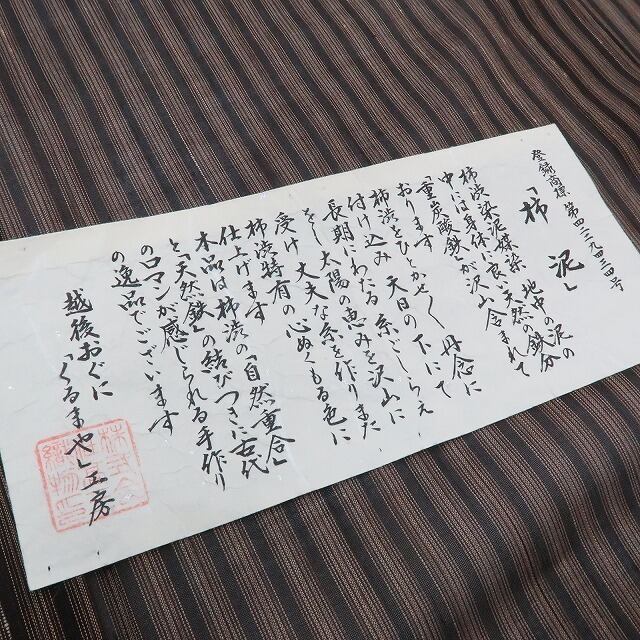 登録商標 第四二九四三四号
「柿泥」
柿渋染泥媒染 地中の沢の
中には身体に良い天然の鉄分
「重炭酸鉄」が沢山含まれて
おります
柿渋をひとかせ〱丹念に
付け込み 天日の下にて
長期にわたる糸ごしらえ
をし 太陽の恵みを沢山に
受け 丈夫な糸を作りまた
柿渋特有の心ぬくもる色に
仕上げます
本品は柿渋の「自然重合」
と「天然鉄」の結びつきに古代
のロマンが感じられる手作り
の逸品でございます
越後おぐに
「くるまや」工房